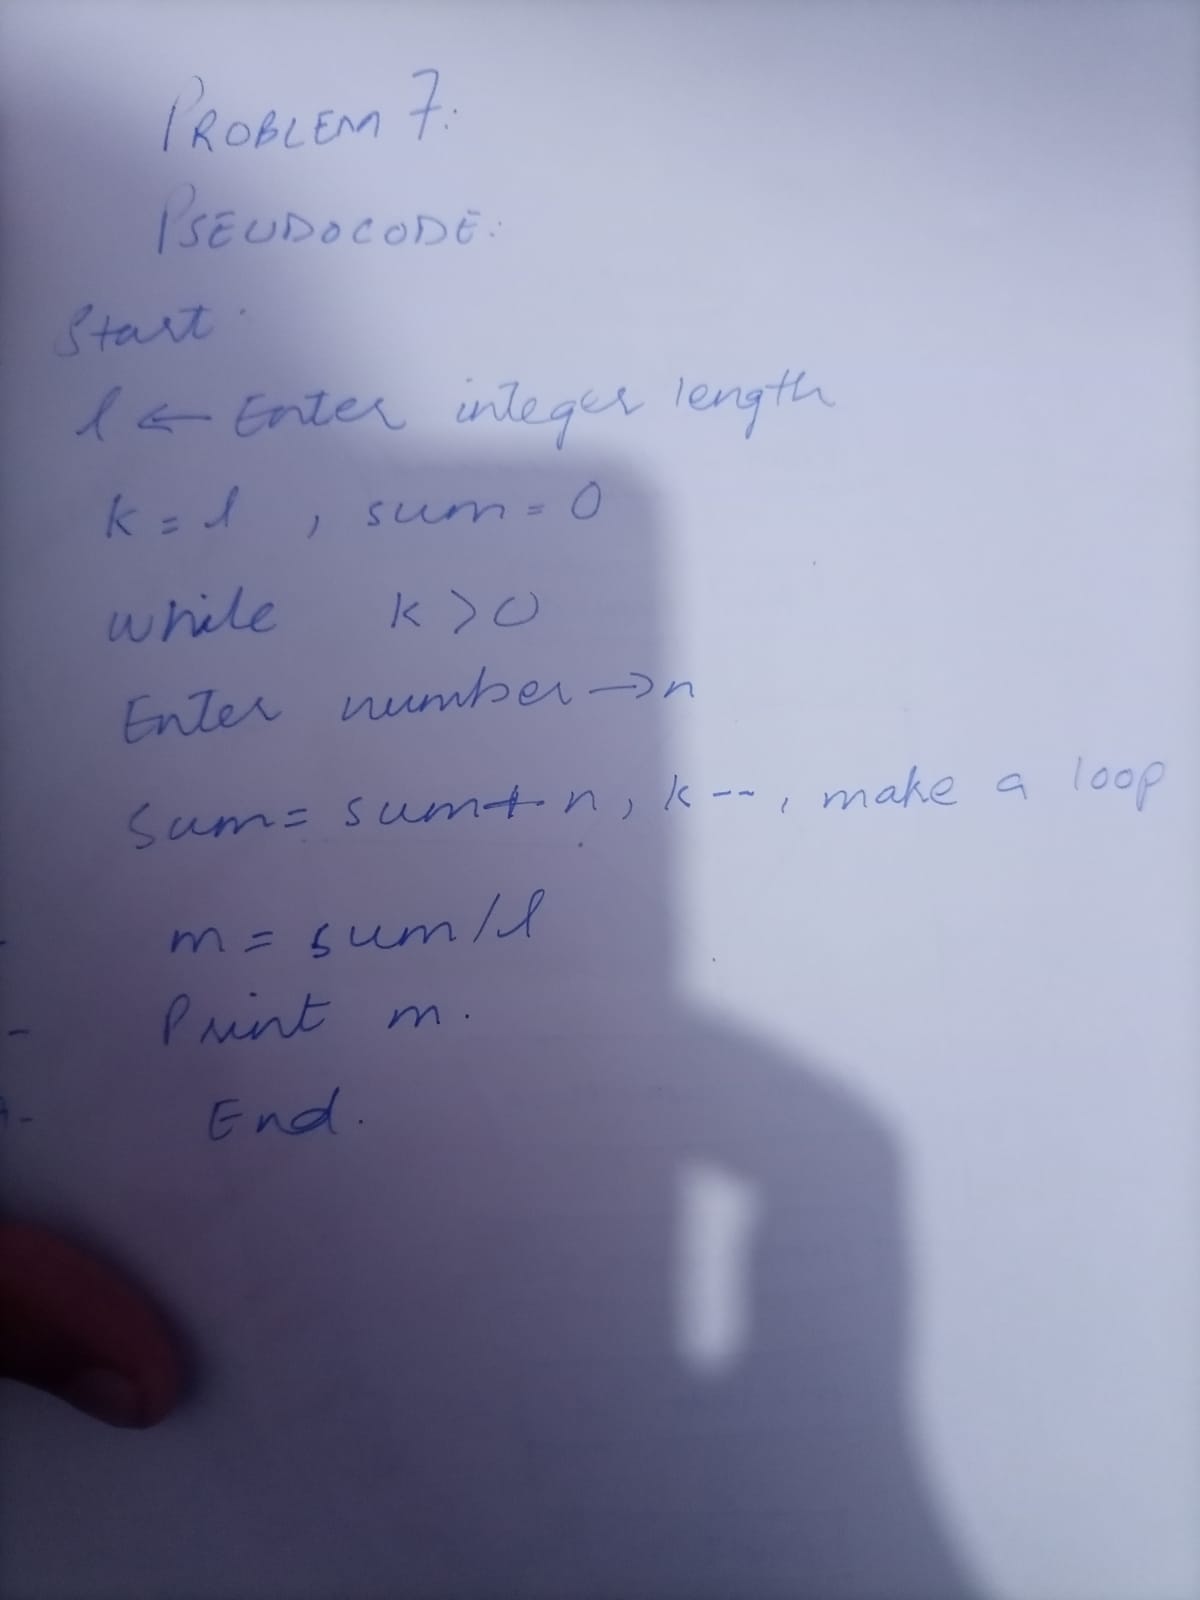 PROBLEM 7:
PSEUDOCODE:
Start.
l ← Enter integer length
k = l , sum = 0
while k > 0
Enter number → n
Sum = sum + n, k --, make a loop
m = sum / l
Print m.
End.